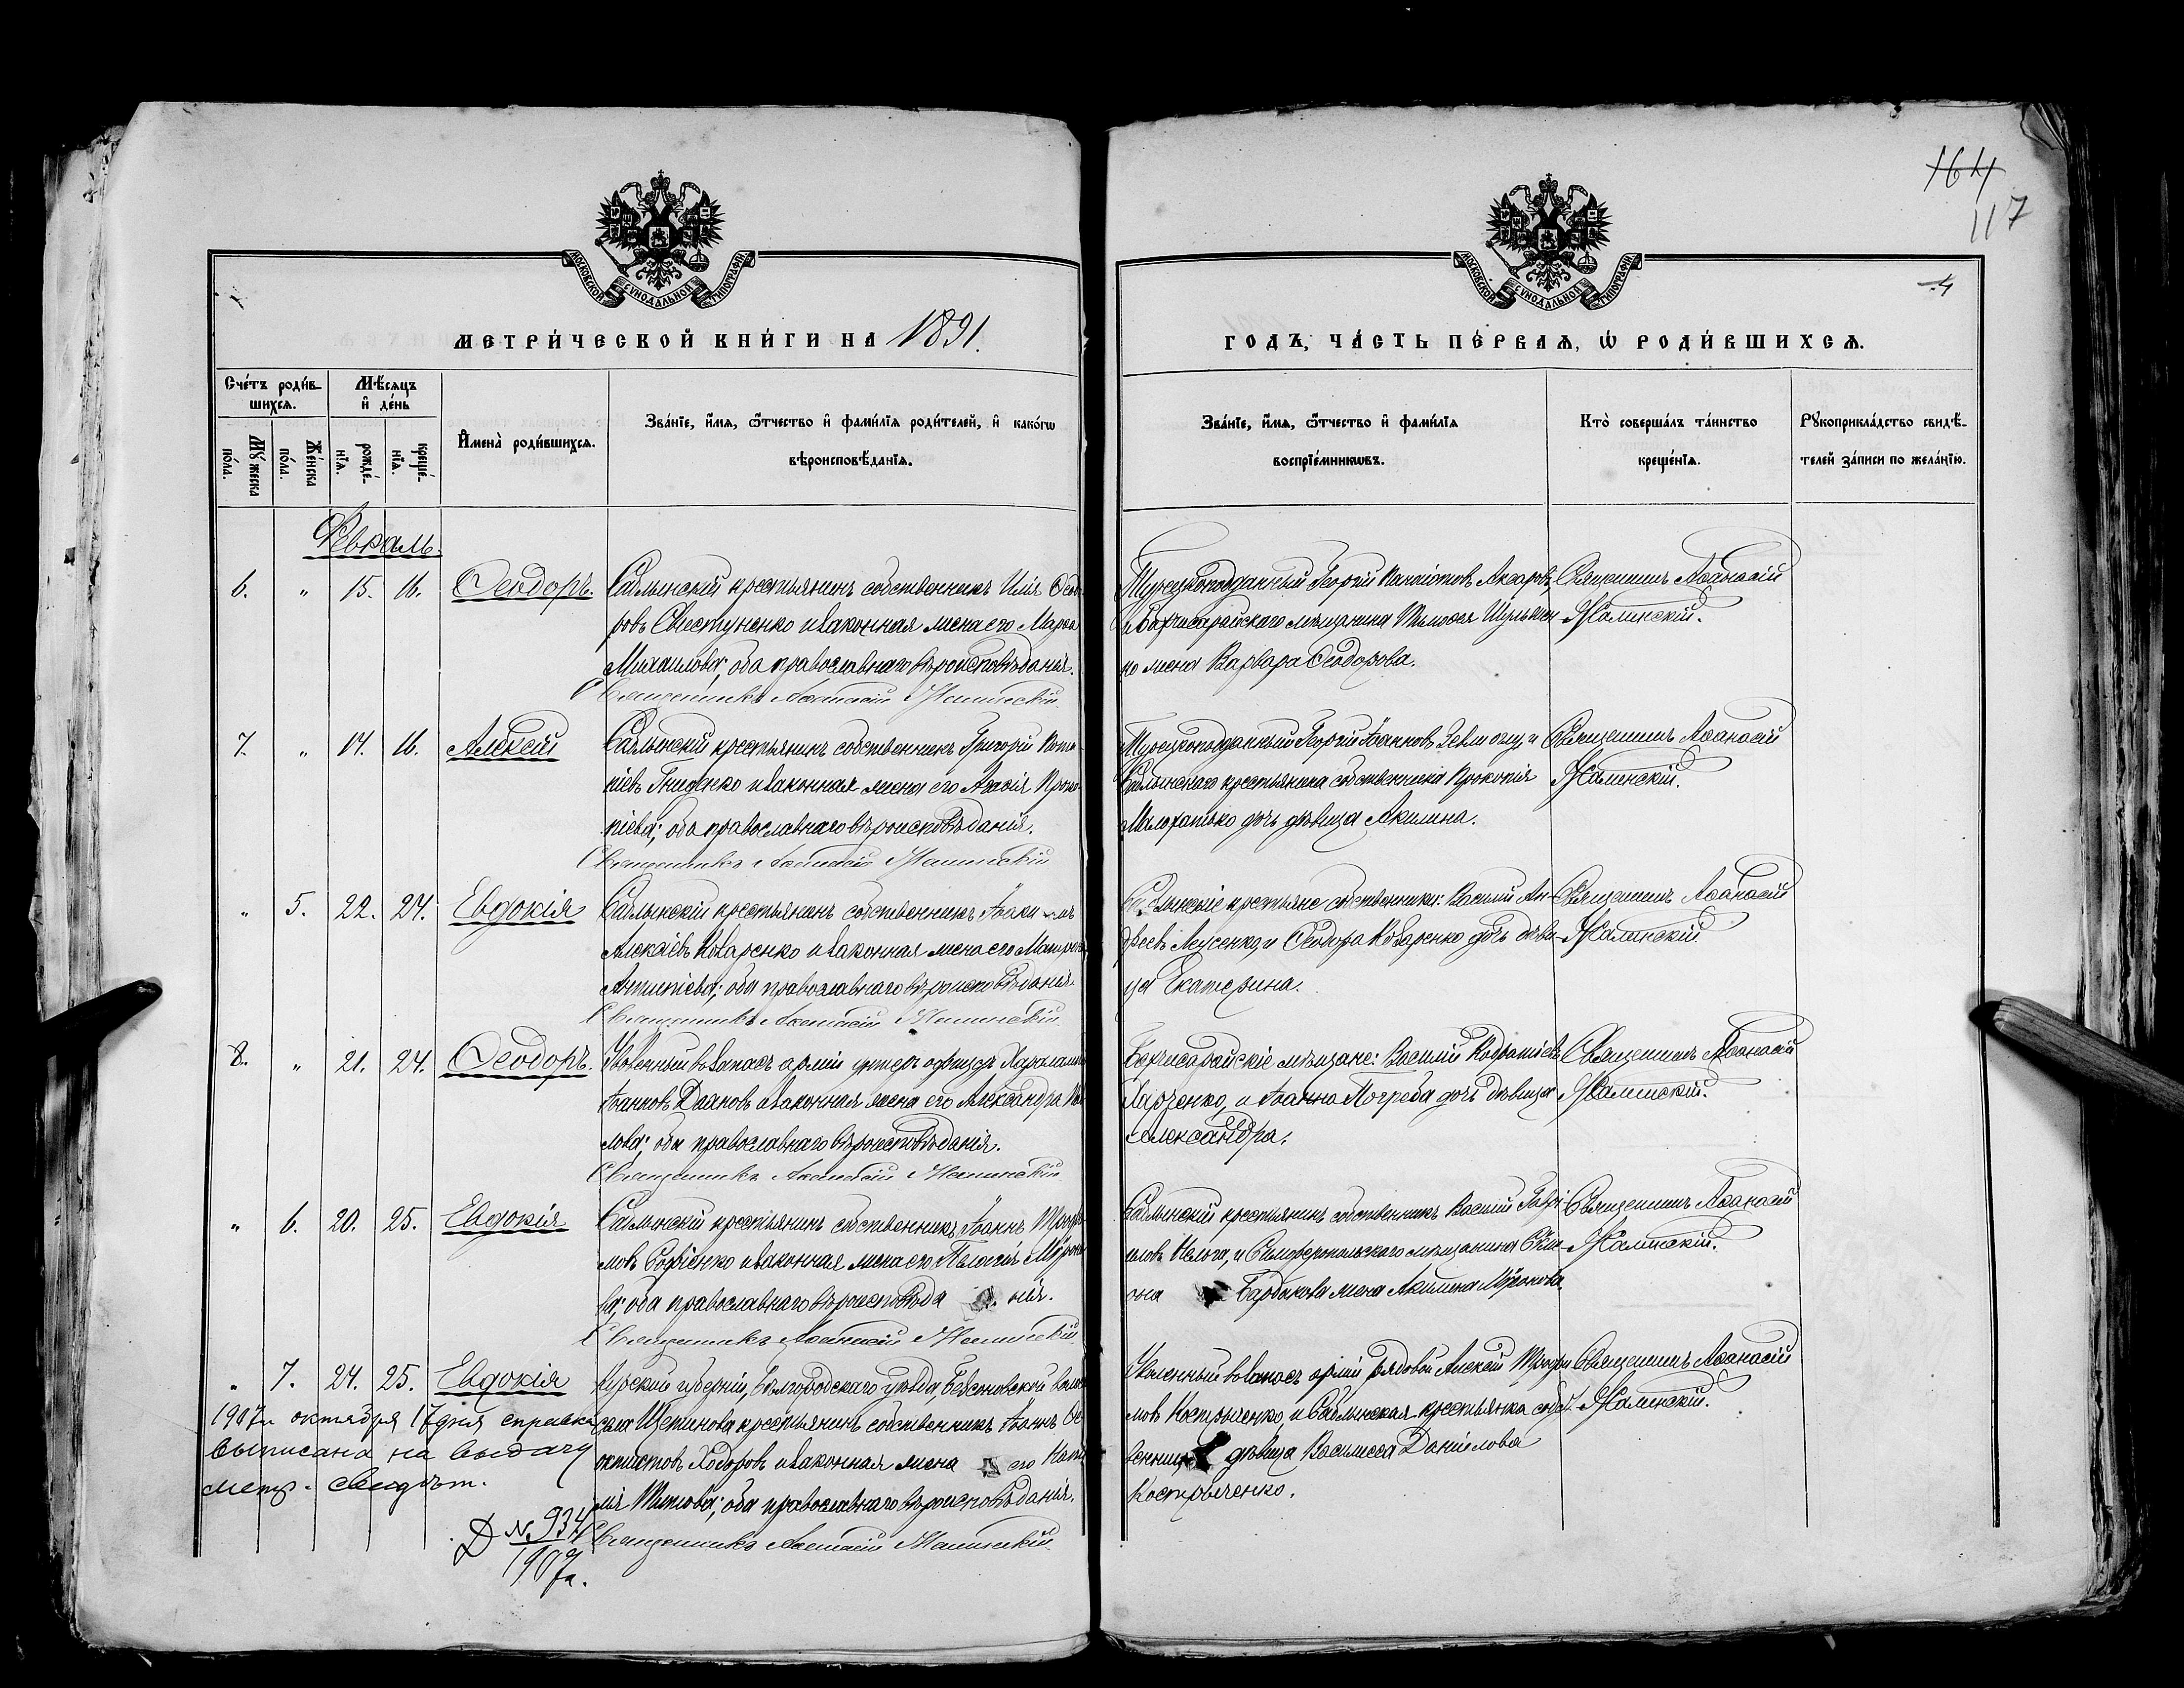 164
117
4
МОСКОВСКОЙ СѴНОДАЛЬНОЙ ТИПОГРАФІИ
МОСКОВСКОЙ СѴНОДАЛЬНОЙ ТИПОГРАФІИ
МЕТРИ́ЧЕСКОЙ КНИ́ГИ НА 1891.
ГОДЪ, ЧА́СТЬ ПЕ́РВАѦ, Ѡ҆ РОДИ́ВШИХСѦ.
Сче́тъ роди́в-
шихсѧ.
Мѣ́сѧцъ
и҆ де́нь
Мꙋ́жеска
по́ла.
Же́нска
по́ла.
рожде́-
нїѧ.
креще́-
нїѧ.
И҆мена̀ роди́вшихсѧ.
Зва́нїе, и҆́мѧ, ѻ҆́тчество и҆ фами́лїѧ роди́телей, и҆ како́гѡ
вѣроисповѣ́данїѧ.
Зва́нїе, и҆́мѧ, ѻ҆́тчество и҆ фами́лїѧ
воспрїе́мникѡвъ.
Кто̀ соверша́лъ та́инство
креще́нїѧ.
Рꙋкоприкла́дство свидѣ́-
телей за́писи по жела́нїю.
Февраль.
6. " 15. 16. Ѳеодоръ.
Саблынскій крестьянинъ собственникъ Илія Ѳеодо-
ровъ Свистуненко и законная жена его Марѳа
Михаилова; оба православнаго вѣроисповѣданія.
Священникъ Аѳанасій Жалинскій.
Турецкоподданный Георгій
и Бахчисарайскаго мѣщанина Тимоѳея
ко жена Варвара Ѳеодорова.
Священникъ Аѳанасій
Жалинскій.
7. " 14. 16. Алексій
Саблынскій крестьянинъ собственникъ Григорій
Гниденко и законная жена его Агаѳія Проко-
піева; оба православнаго вѣроисповѣданія.
Священникъ Аѳанасій Жалинскій
Турецкоподданный Георгій Іоанновъ и
Саблынскаго крестьянина собственника Прокопія
дочь дѣвица Акилина.
Священникъ Аѳанасій
Жалинскій.
" 5. 22. 24. Евдокія
Саблынскій крестьянинъ собственникъ Іоакимъ
Алексіевъ Козаренко и законная жена его Матрона
Антипіева; оба православнаго вѣроисповѣданія.
Священникъ Аѳанасій Жалинскій
Саблынскіе крестьяне собственники: Василій Ан-
дреевъ Мусенко, и Ѳеодора Козаренко дочь дѣви-
ца Екатерина.
Священникъ Аѳанасій
Жалинскій.
8. " 21. 24. Ѳеодоръ.
Уволенный въ запасъ арміи унтеръ офицеръ Харлампій
Іоанновъ и законная жена его Александра
лова; оба православнаго вѣроисповѣданія.
Священникъ Аѳанасій Жалинскій
Бахчисарайскіе мѣщане: Василій Кодратіевъ
Харченко, и Іоанна Погреба дочь дѣвица
Александра.
Священникъ Аѳанасій
Жалинскій.
" 6. 20. 25. Евдокія
Саблынскій крестьянинъ собственникъ Іоаннъ Трофи-
мовъ Софіенко и законная жена его Пелагія Мѵроно-
ва; оба православнаго вѣроисповѣда нія.
Священникъ Аѳанасій Жалинскій
Саблынскій крестьянинъ собственникъ Василій Гаврі-
иловъ и Симферопольскаго мѣщанина Сѵме-
она Бардакова жена Акилина Мѵронова.
Священникъ Аѳанасій
Жалинскій.
" 7. 24. 25. Евдокія
Курской губерніи, Бѣлгородскаго уѣзда, Бессоновской волос.
села Щетинова крестьянинъ собственникъ Іоаннъ Ѳе-
октистовъ Ходоровъ и законная жена его
Титова; оба православнаго вѣроисповѣданія.
Священникъ Аѳанасій Жалинскій
Уволенный въ запасъ арміи рядовой Алексій Трофи-
мовъ Костыченко, и Саблынская крестьянка собст-
венница дѣвица Василисса Даніилова
Костырченко.
Священникъ Аѳанасій
Жалинскій.
1907 г. октября 17 дня справка
выписана на выдачу
метр. свидѣт.
Д № 934
1907 г.